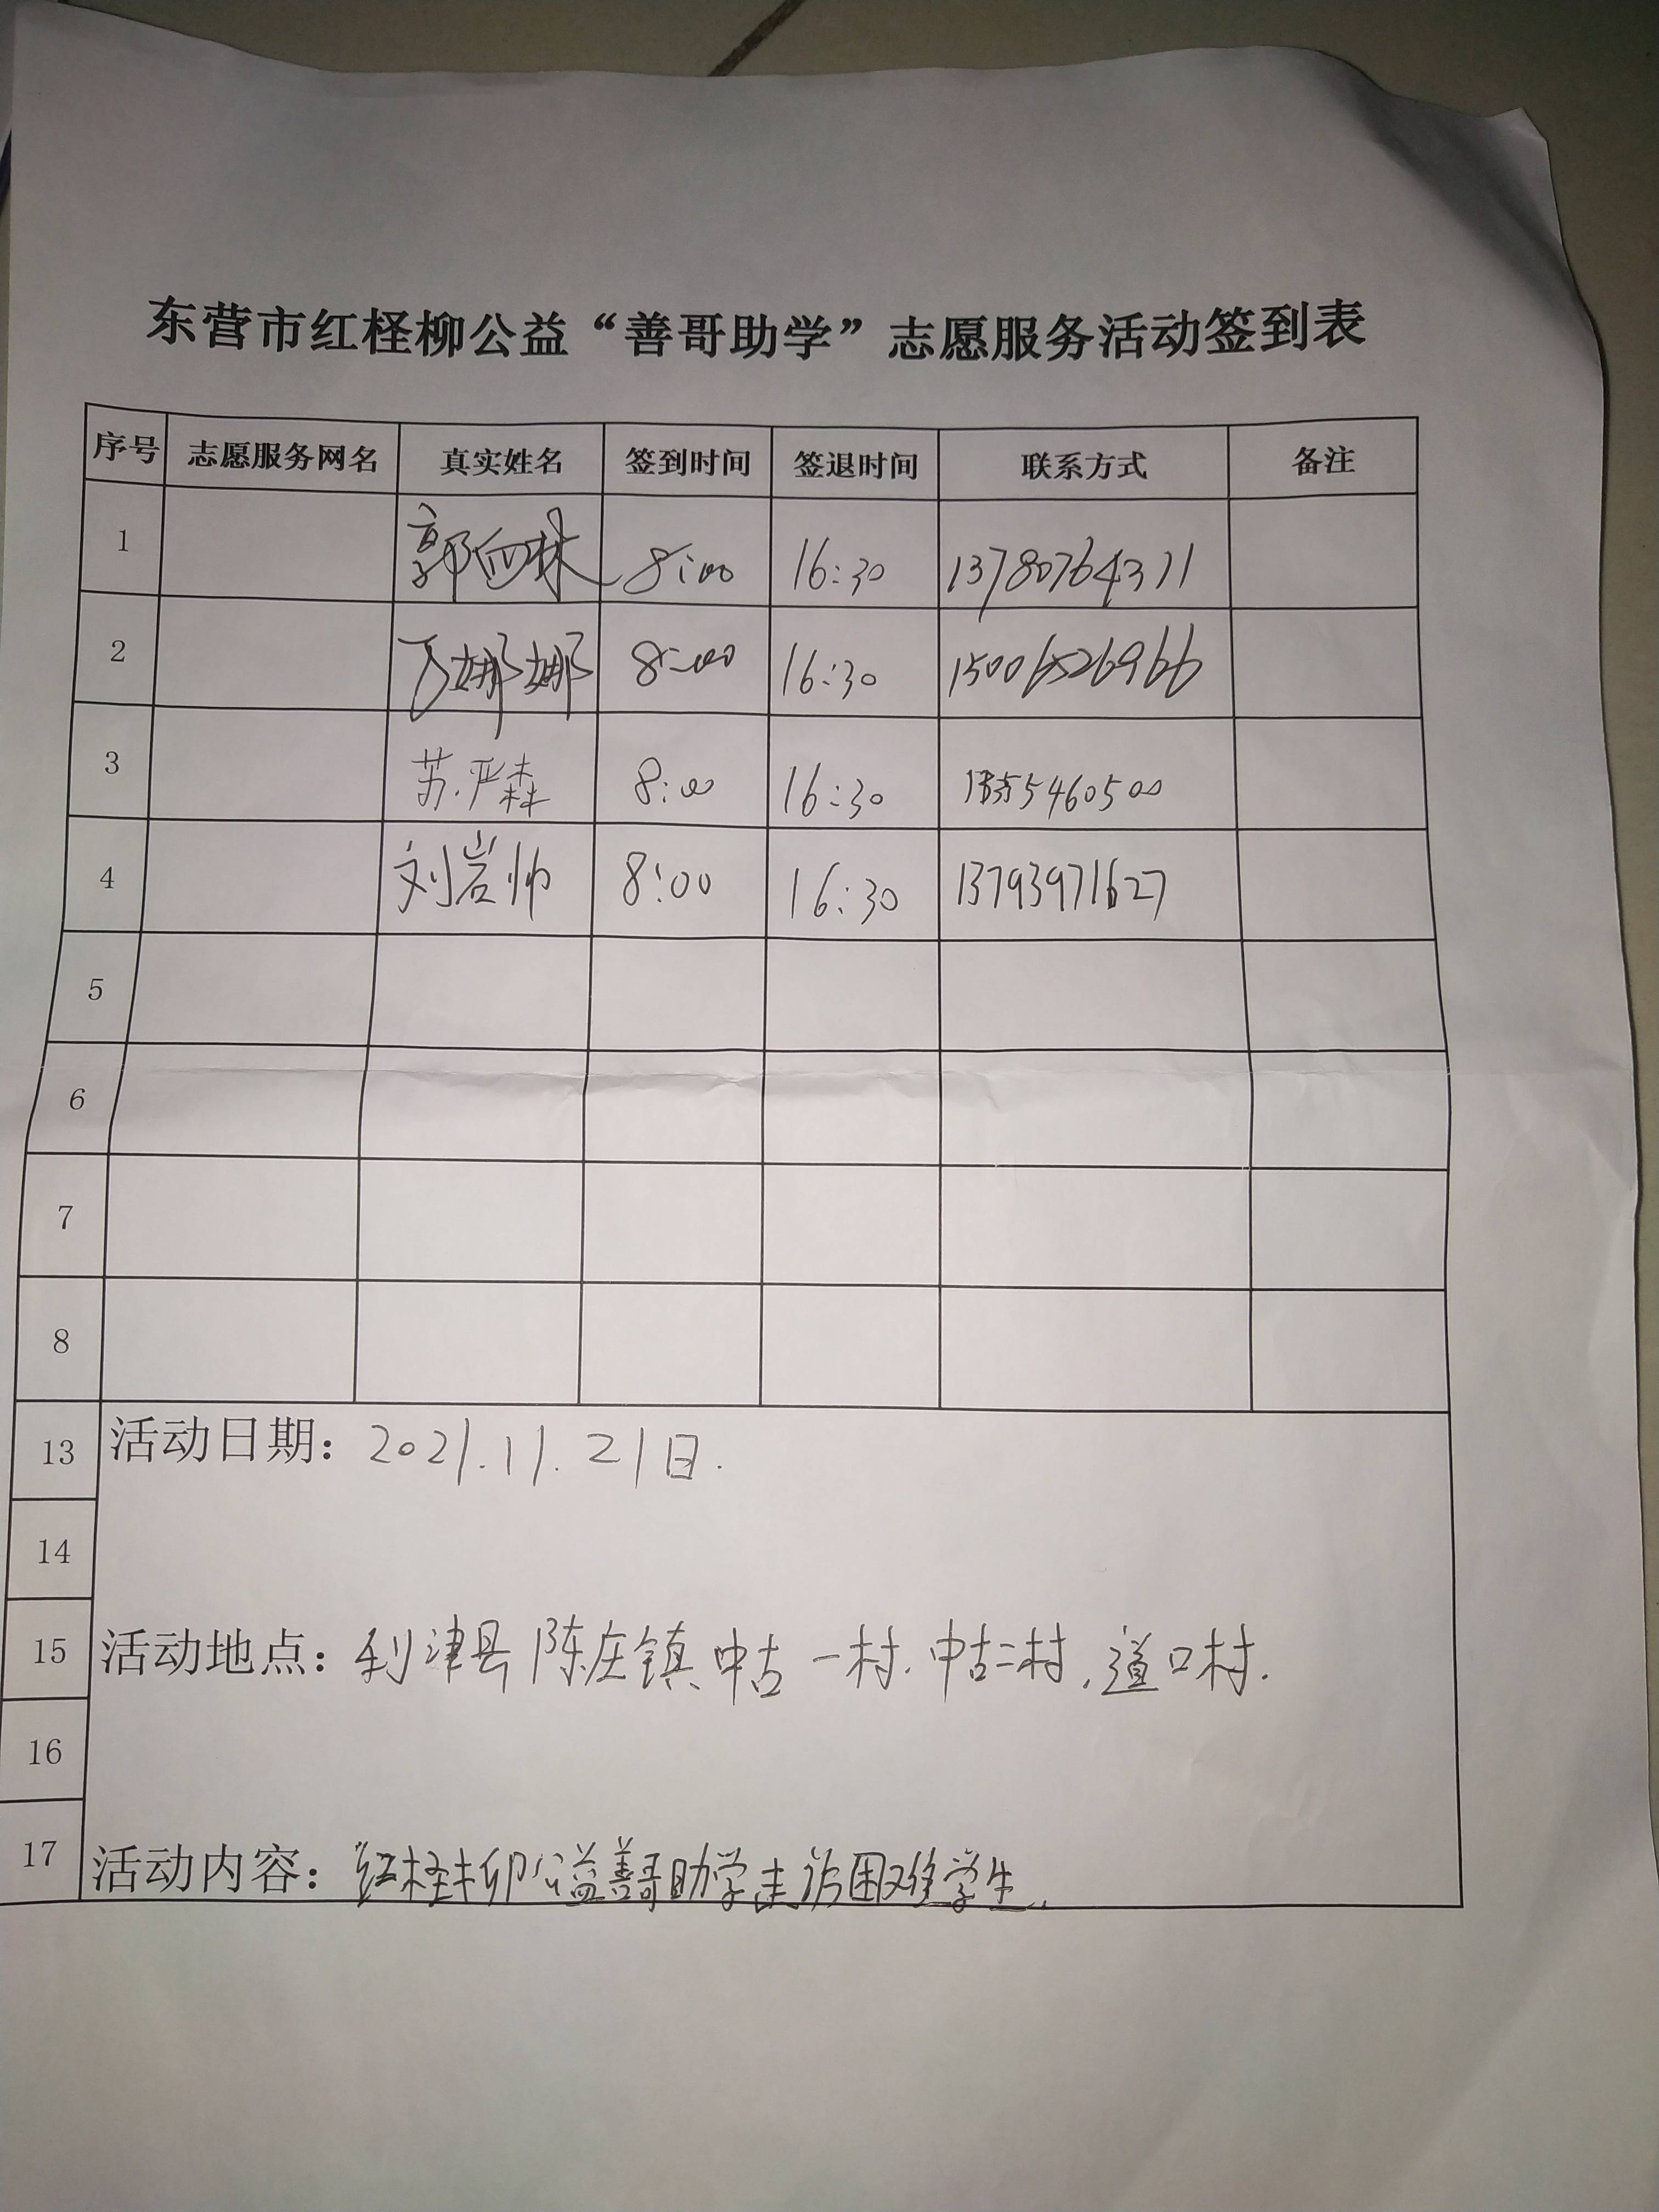 东营市红柽柳公益“善哥助学”志愿服务活动签到表
序号 志愿服务网名 真实姓名 签到时间 签退时间 联系方式 备注
1 郭 林 8:00 16:30 13780764311
2 万娜娜 8:00 16:30 15006526966
3 苏严森 8:00 16:30 5460500
4 刘岩帅 8:00 16:30 13793971627
5
6
7
8
13 活动日期：2021.11.21日.
14
15 活动地点：利津县陈庄镇中古一村.中古二村,道口村.
16
17 活动内容：红柽柳公益善哥助学走访困难学生.